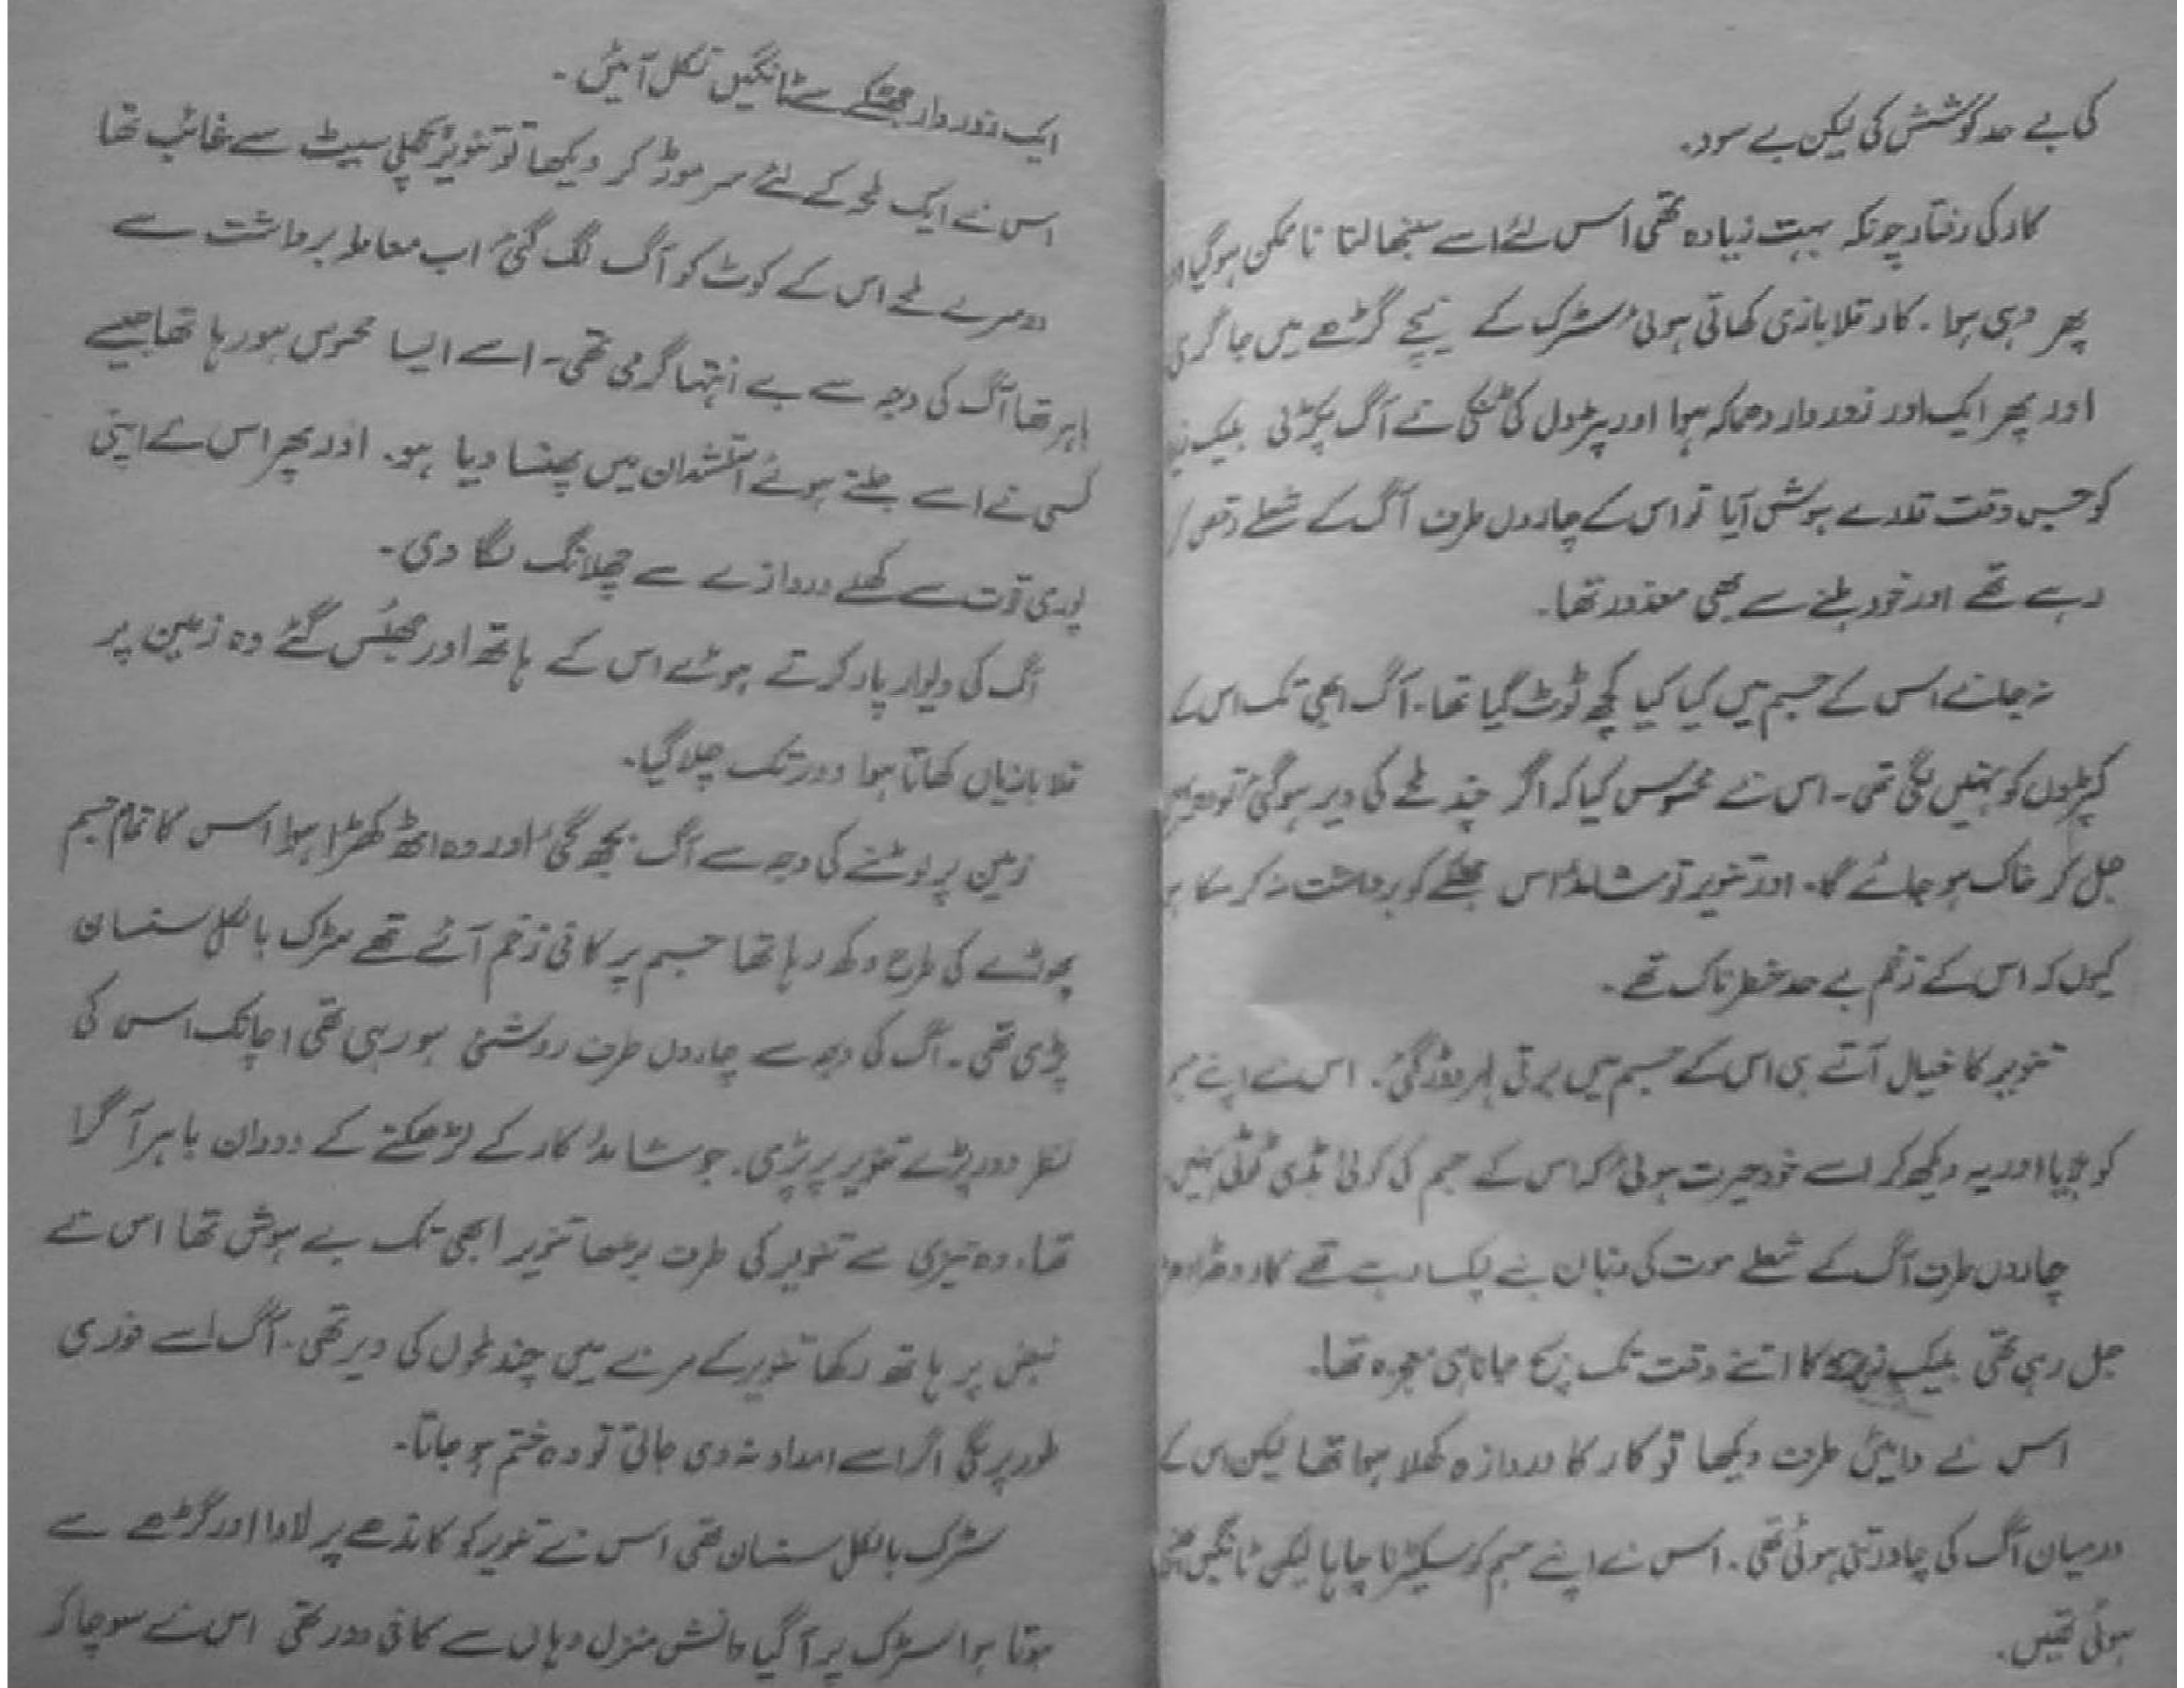 کی بے حد کوشش کی لیکن بے سود.
کار کی رفتار چونکہ بہت زیادہ تھی اس لئے اسے سنبھالنا ناممکن ہو گیا اور
پھر وہی ہوا. کار قلابازی کھاتی ہوئی سڑک کے نیچے گڑھے میں جا گری
اور پھر ایک اور زور دار دھماکہ ہوا اور پٹرول کی ٹنکی نے آگ پکڑ لی بلیک
کو جس وقت قدرے ہوش آیا تو اس کے چاروں طرف آگ کے شعلے رقص کر
رہے تھے اور خود ہلنے سے بھی معذور تھا.
نہ جانے اس کے جسم میں کیا کیا کچھ ٹوٹ گیا تھا۔ آگ ابھی تک اس کے
کپڑوں کو نہیں لگی تھی۔ اس نے محسوس کیا کہ اگر چند لمحے کی دیر ہو گئی تو وہ
جل کر خاک ہو جائے گا. اور تنویر تو شائد اس جھٹکے کو برداشت نہ کر سکا ہو
کیوں کہ اس کے زخم بے حد خطرناک تھے۔
تنویر کا خیال آتے ہی اس کے جسم میں برقی لہر دوڑ گئی. اس نے اپنے
کو ہلایا اور یہ دیکھ کر اسے خود حیرت ہوئی کہ اس کے جسم کی کوئی ہڈی ٹوٹی نہیں
چاروں طرف آگ کے شعلے موت کی زبان بنے لپک رہے تھے کار دھڑا دھڑ
جل رہی تھی بلیک زیرو کا اتنے وقت تک بچ جانا ہی معجزہ تھا.
اس نے دائیں طرف دیکھا تو کار کا دروازہ کھلا ہوا تھا لیکن اس کے
درمیان آگ کی چادر تنی ہوئی تھی. اس نے اپنے جسم کو سکیڑنا چاہا لیکن ٹانگیں
ہوئی تھیں.
ایک زور دار جھٹکے سے ٹانگیں نکل آئیں۔
اس نے ایک لمحہ کے لئے سر موڑ کر دیکھا تو تنویر پچھلی سیٹ سے غائب تھا
دوسرے لمحے اس کے کوٹ کو آگ لگ گئی اب معاملہ برداشت سے
باہر تھا آگ کی وجہ سے بے انتہا گرمی تھی۔ اسے ایسا محسوس ہو رہا تھا جیسے
کسی نے اسے جلتے ہوئے آتشدان میں پھنسا دیا ہو. اور پھر اس نے اپنی
پوری قوت سے کھلے دروازے سے چھلانگ لگا دی۔
آگ کی دیوار پار کرتے ہوئے اس کے ہاتھ اور جھلس گئے وہ زمین پر
قلابازیاں کھاتا ہوا دور تک چلا گیا.
زمین پر لوٹنے کی وجہ سے آگ بجھ گئی اور وہ اٹھ کھڑا ہوا اس کا تمام جسم
پھوڑے کی طرح دکھ رہا تھا جسم پر کافی زخم آئے تھے سڑک بالکل سنسان
پڑی تھی۔ آگ کی وجہ سے چاروں طرف روشنی ہو رہی تھی اچانک اس کی
نظر دور پڑے تنویر پر پڑی. جو شائد کار کے لڑھکنے کے دوران باہر آ گرا
تھا. وہ تیزی سے تنویر کی طرف بڑھا تنویر ابھی تک بے ہوش تھا اس نے
نبض پر ہاتھ رکھا تنویر کے مرنے میں چند لمحوں کی دیر تھی. آگ اسے فوری
طور پر لگی اگر اسے امداد نہ دی جاتی تو وہ ختم ہو جاتا.
سڑک بالکل سنسان تھی اس نے تنویر کو کاندھے پر لادا اور گڑھے سے
ہوتا ہوا سڑک پر آ گیا دانش منزل وہاں سے کافی دور تھی اس نے سوچا کہ